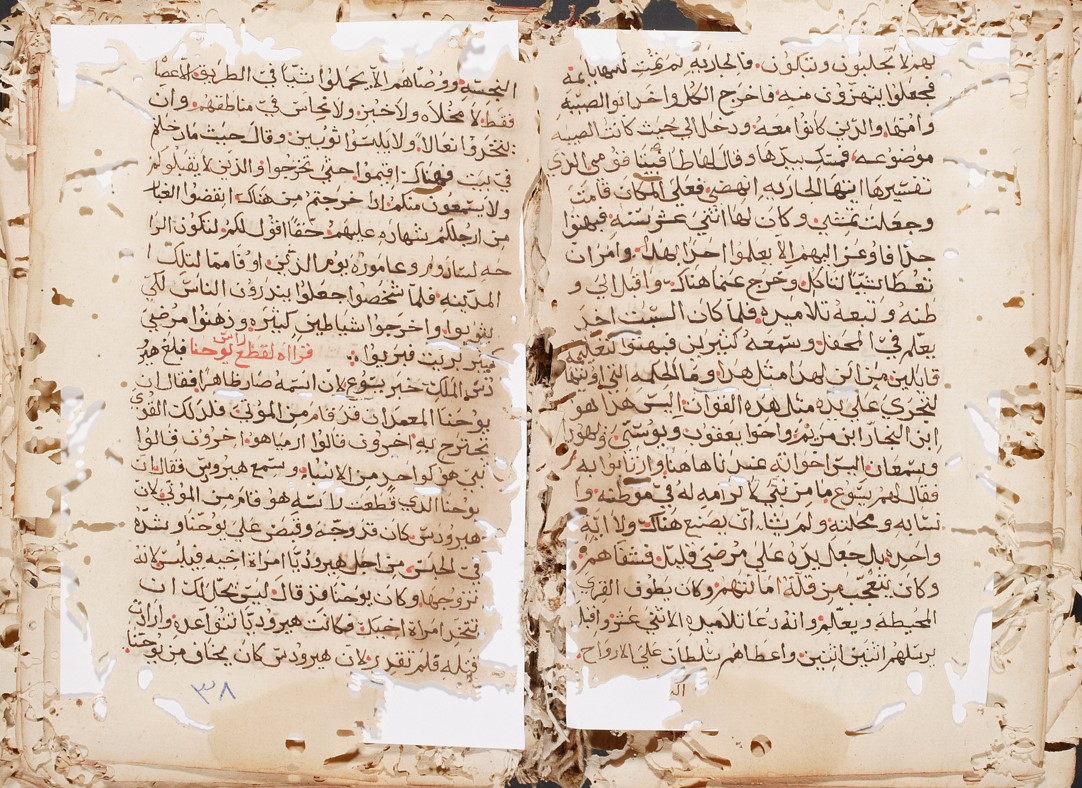 بهم لا تجلبون وتبكون. فالجاريه لم تمت لكنها نايمه
فجعلوا يتهزون منه فاخرج الكل واخذ ابو الصبيه
وامها والذين كانوا معه ودخل الي حيث كانت الصبيه
موضوعه. فمسك بيدها وقال لها طابيثا قومي الذي
تفسيرها ايتها الجاريه انهضي فعلي المكان قامت
وجعلت تمشي. وكان لها اثنتي عشر سنه. فبهتوا
جدا فاوعز اليهم الا يعلموا احدا بهذا وامر ان
تعطا شيا لتاكل وخرج عما هناك. واقبل الي و
طنه وتبعه تلاميده. فلما كان السبت اخد
يعلم في المحفل وسمعه كثيرين فبهتوا لتعليمه
قايلين من اين لهدا مثل هدا وما الحكمه التي اوتيها
لتجري علي يده مثل هده القوات اليس هذا هو
ابن النجار ابن مريم واخوا يعقوب ويوسي ويهودا
وسمعان. اليس اخواته عندنا هاهنا وارتابوا به
فقال لهم يسوع ما من نبي لا كرامه له في موطنه و
نسابه ومحلته ولم يشا ان يصنع هناك ولا ايه
واحده بل جعل يده علي مرضي قليل فشفاهم
وكان يتعجب من قلة امانتهم وكان يطوف القري
المحيطه ويعلم وانه دعا تلاميده الاثني عشر واقبل
يرسلهم اثنين اثنين واعطاهم سلطان علي الارواح
النجسه ووصاهم الا يحملوا شيا في الطريق الا عصا
فقط لا مخلاه ولا خبز ولا نحاس في مناطقهم وان
يتخذوا نعالا ولا يلبسوا ثوبين وقال حيث ما دخلتم
في بيت فهناك اقيموا حتي تخرجوا والذين لا يقبلونكم
ولا يسمعون منكم اذا خرجتم من هناك انفضوا الغبار
من ارجلكم شهاده عليهم حقا اقول لكم لتكون الرا
حه لسادوم وعاموره يوم الدين اوفا مما لتلك ا
المدينه فلما شخصوا جعلوا ينذرون الناس لكي
يتوبوا واخرجوا شياطين كثيره ودهنوا مرضي
بزيت فبريوا قرااه لقطع راس يوحنا فلغ هير
دس الملك خبر يسوع لان اسمه صار ظاهرا فقال ان
يوحنا المعمدان قد قام من الموتي فلذلك القوي
تخترج به اخرون قالوا ارمياهو اخرون قالوا
نبي هو كواحد من الانبياء وسمع هيرودس فقال ان
يوحنا الذي قطعت راسه هو قام من الموتي لان
هيرودس كان قد وجه وقبض علي يوحنا وشده
في الحبس من اجل هيروديا امراة اخيه فيلبس لانه
تزوجها وكان يوحنا قد قال ليس يحل لك ان
تتخد امراة اخيك فكانت هيروديا تتواعده وارادت
قتله فلم تقدر لان هيرودس كان يخاف من يوحنا
٣٨